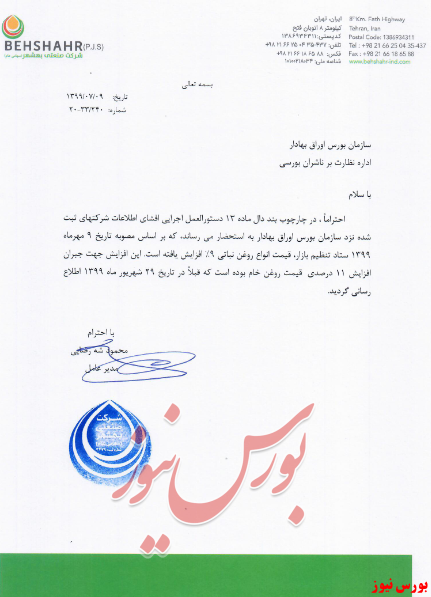 BEHSHAHR(P.J.S)
شرکت صنعتی بهشهر (سهامی عام)
ایران، تهران
کیلومتر ۸ اتوبان فتح
کدپستی: ۱۳۸۶۹۳۴۳۱۱
تلفن: ۴۳۷-۳۵ ۰۴ ۲۵ ۶۶ ۲۱ ۹۸+
فکس: ۸۸ ۶۵ ۱۸ ۶۶ ۲۱ ۹۸+
8th Km. Fath Highway
Tehran, Iran
Postal Code: 1386934311
Tel: +98 21 66 25 04 35-437
Fax: +98 21 66 18 65 88
www.behshahr-ind.com
بسمه تعالی
تاریخ: ۱۳۹۹/۰۷/۰۹
شماره: ۲۰-۳۳/۲۴۰
سازمان بورس اوراق بهادار
اداره نظارت بر ناشران بورسی
با سلام
احتراماً ، در چارچوب بند دال ماده ۱۳ دستورالعمل اجرایی افشای اطلاعات شرکتهای ثبت
شده نزد سازمان بورس اوراق بهادار به استحضار می رساند، که بر اساس مصوبه تاریخ ۹ مهرماه
۱۳۹۹ ستاد تنظیم بازار، قیمت انواع روغن نباتی ۹٪ افزایش یافته است. این افزایش جهت جبران
افزایش ۱۱ درصدی قیمت روغن خام بوده است که قبلاً در تاریخ ۲۹ شهریور ماه ۱۳۹۹ اطلاع
رسانی گردید.
با احترام
محمود
مدیر عامل
شرکت
صنعتی
بهشهر
بورس نیوز
بورس نیوز